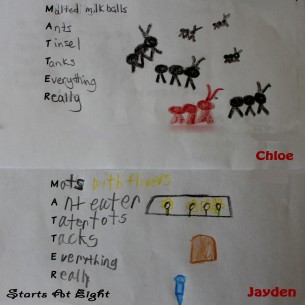 Malted milk balls
Ants
Tinsel
Tanks
Everything
Really
Chloe
Mats with flowers
Ant eater
Tatertots
Tacks
Everything
Really
Starts At Eight
Jayden